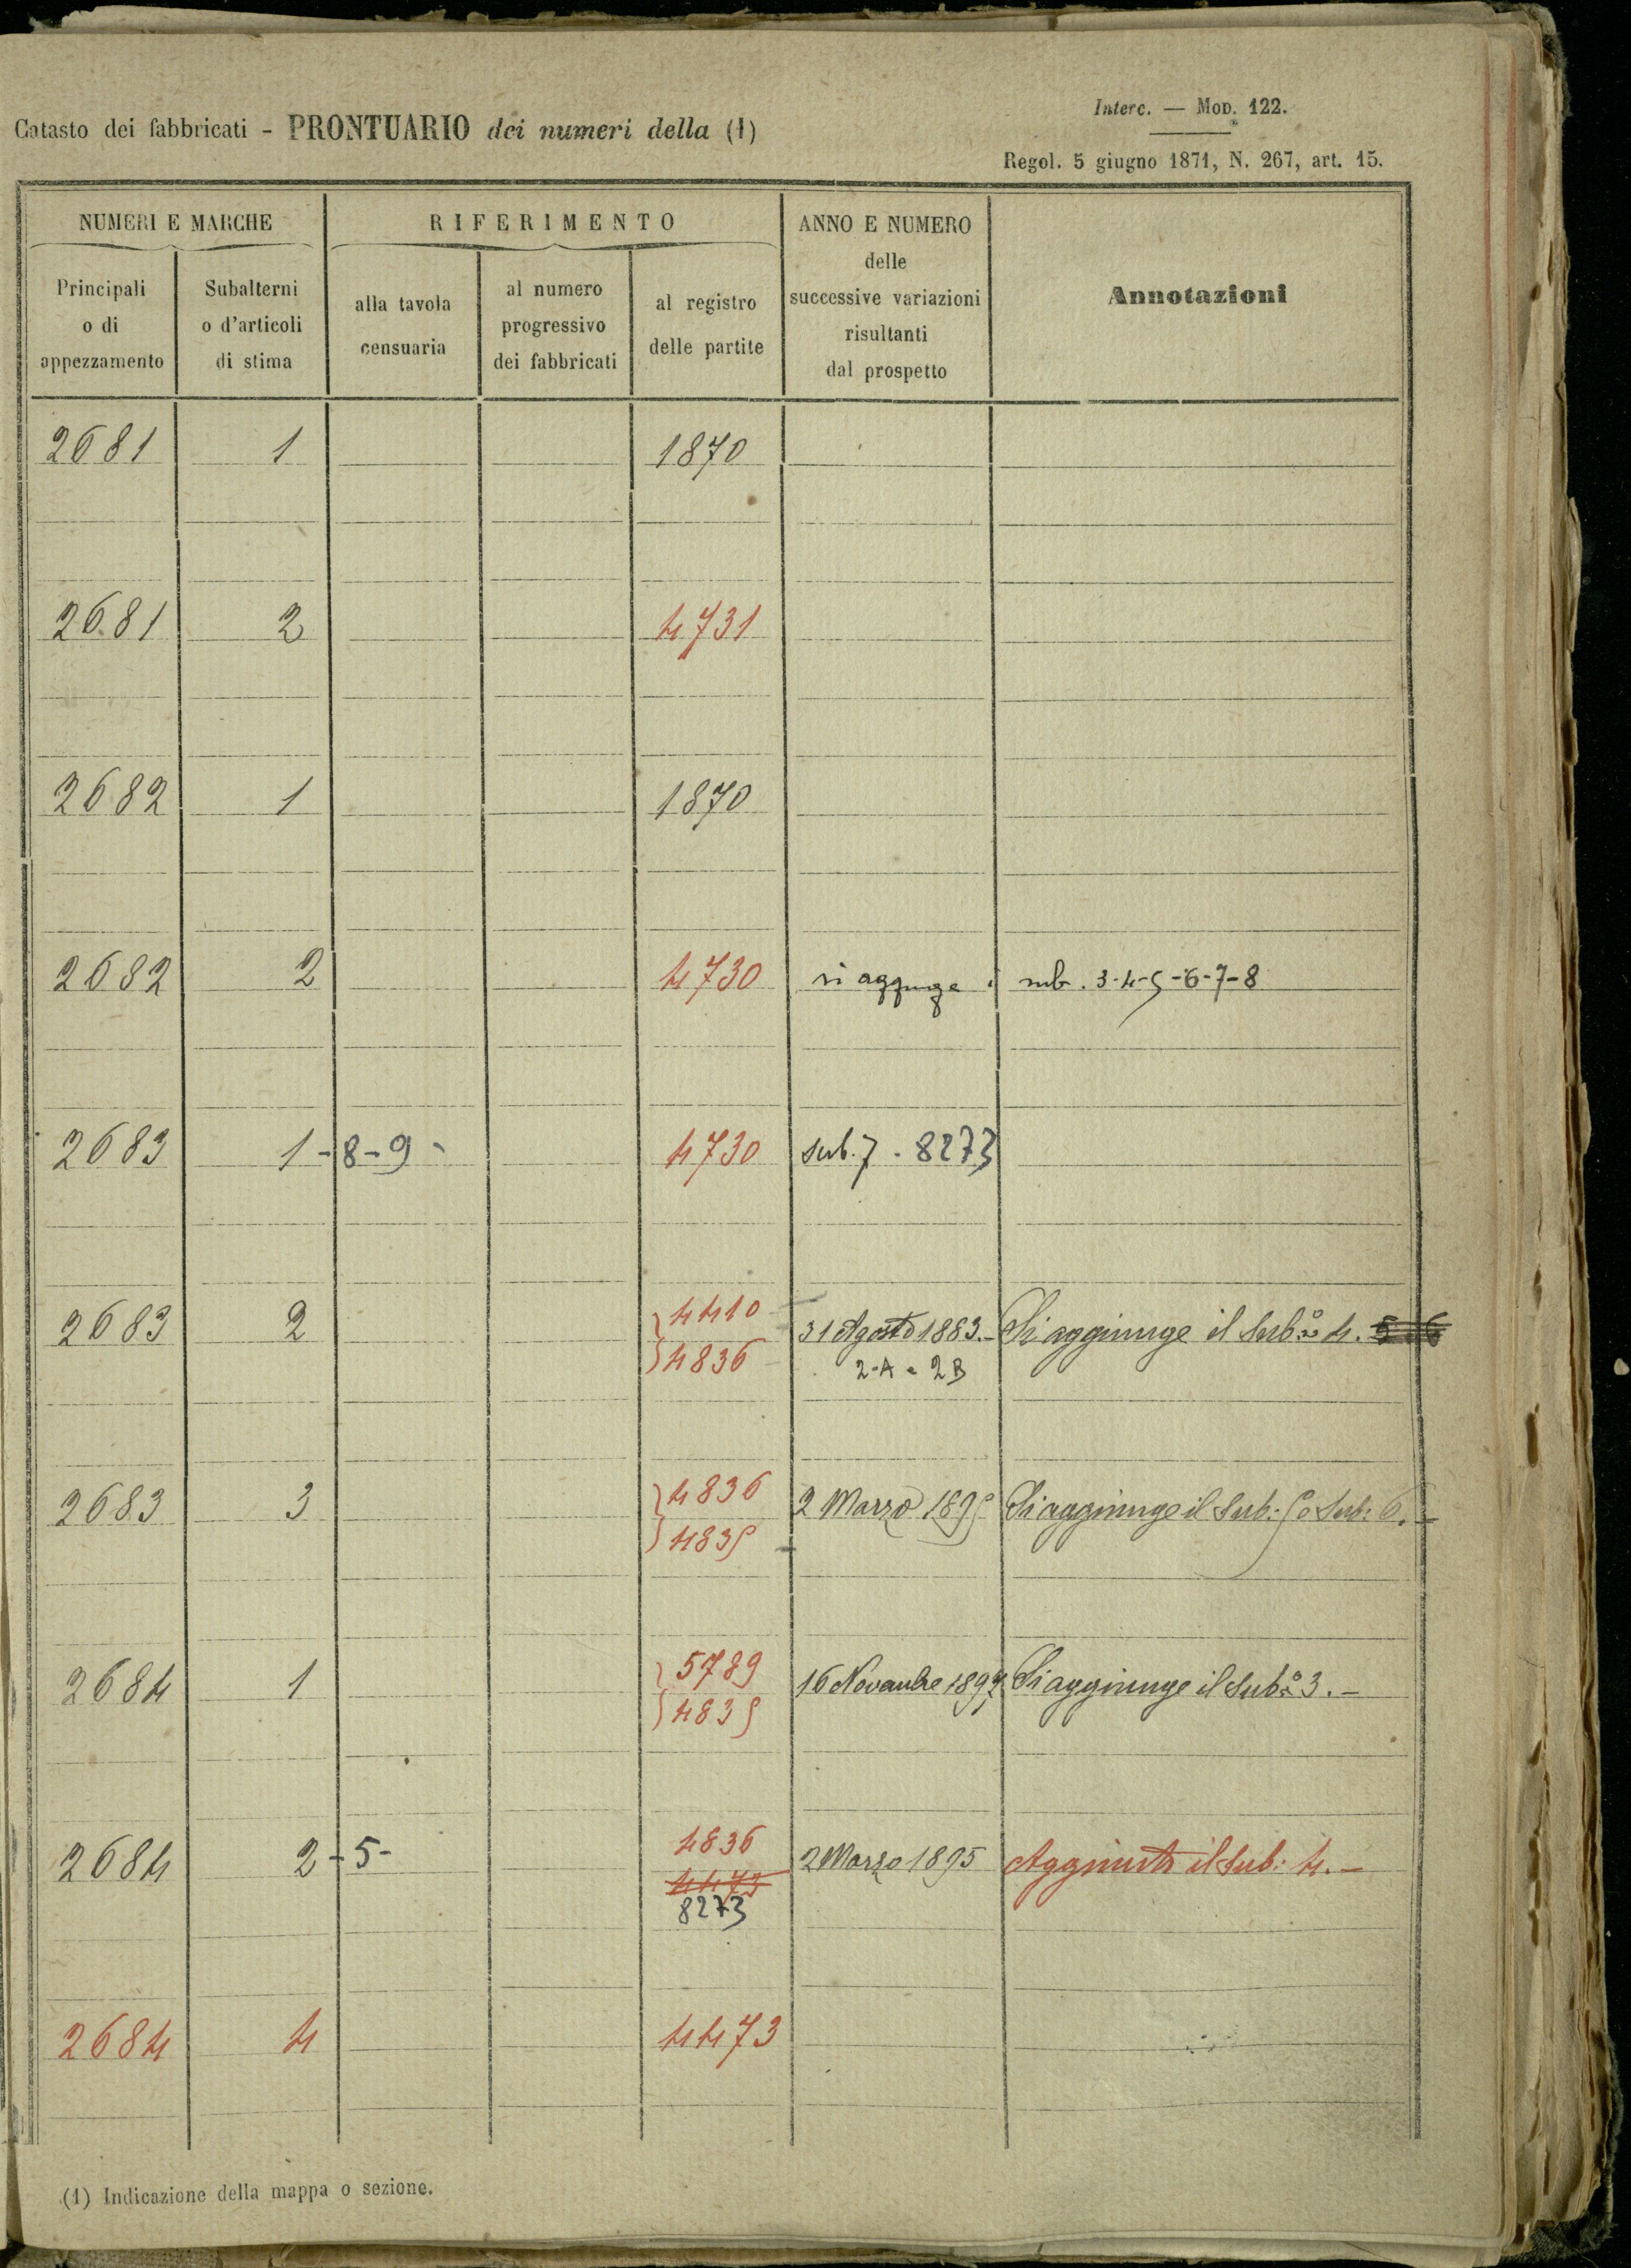 Catasto dei fabbricati - PRONTUARIO dei numeri della (1)
Interc. — Mod. 122.
Regol. 5 giugno 1871, N. 267, art. 15.
NUMERI E MARCHE
RIFERIMENTO
ANNO E NUMERO
delle
successive variazioni
risultanti
dal prospetto
Annotazioni
Principali
o di
appezzamento
Subalterni
o d'articoli
di stima
alla tavola
censuaria
al numero
progressivo
dei fabbricati
al registro
delle partite
2681 1 1870
2681 2 4731
2682 1 1870
2682 2 4730 si aggiunge i sub. 3-4-5-6-7-8
2683 1-8-9- 4730 sub. 7 - 8273
2683 2 4410 31 Agosto 1883.- Si aggiunge il Subo 4. 5 6
4836 2-A e 2B
2683 3 4836 2 Marzo 1895 Si aggiunge il Sub: 5 e Sub: 6.-
4835
2684 1 5789 16 Novembre 1892 Si aggiunge il Subo 3.-
4835
2684 2-5- 4836 2 Marzo 1895 Aggiunto il Sub: 4.-
4473
8273
2684 4 4473
(1) Indicazione della mappa o sezione.